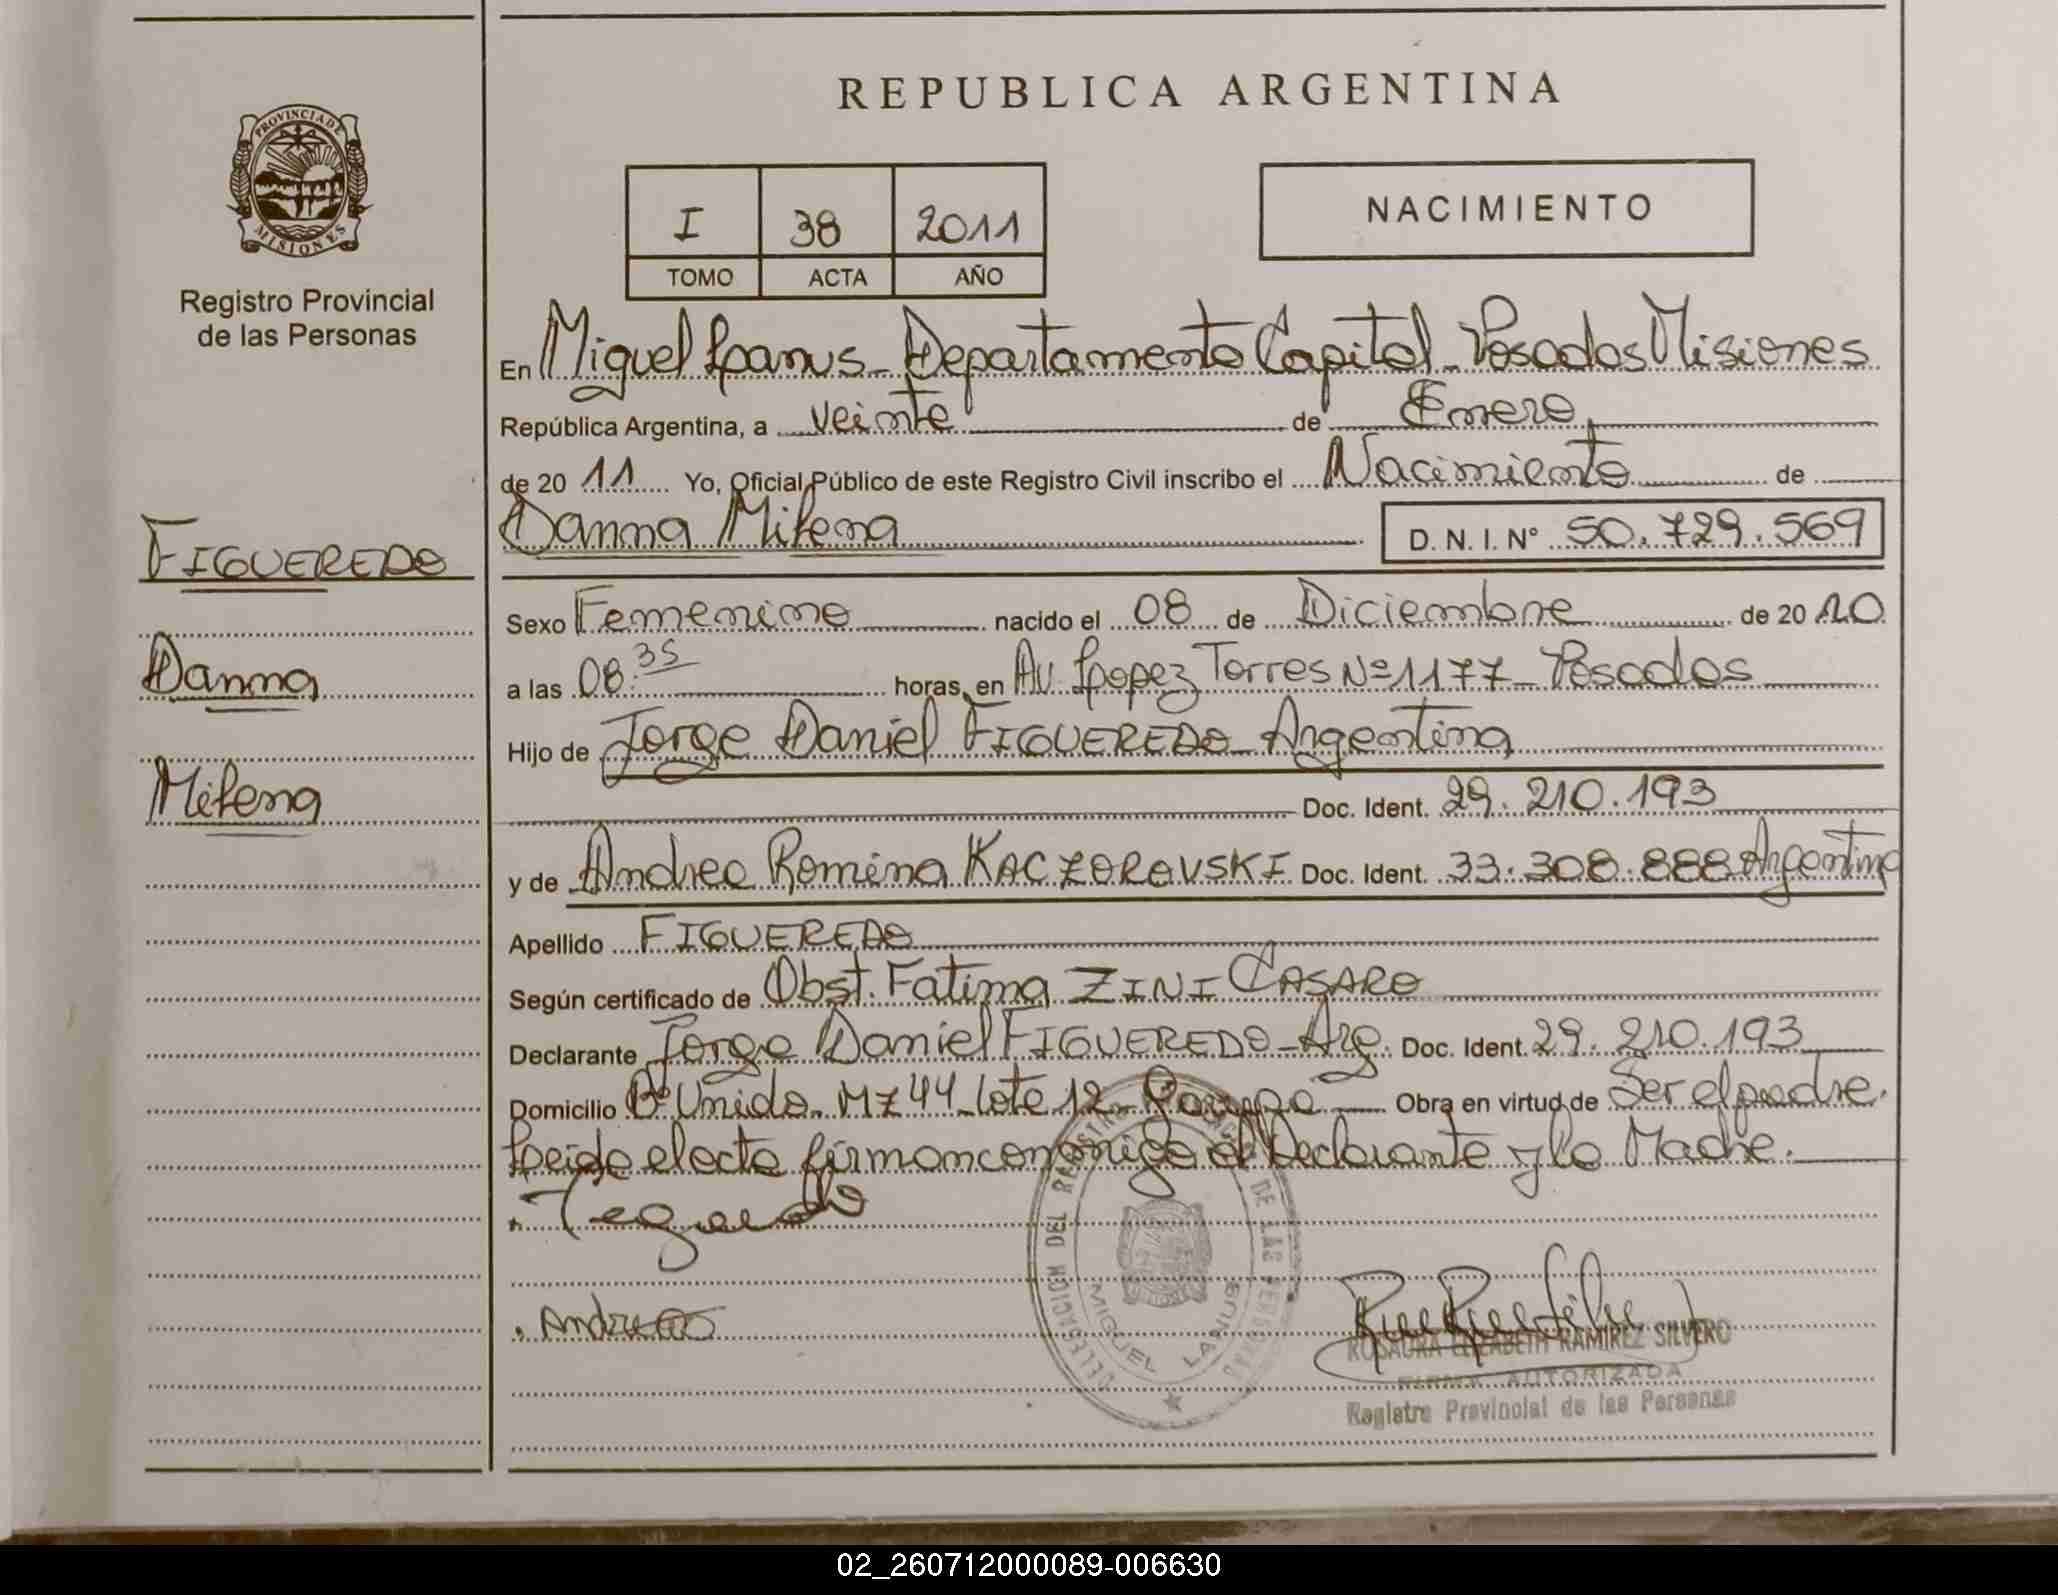 REPUBLICA ARGENTINA
PROVINCIA DE
MISIONES
Registro Provincial
de las Personas
I 38 2011
TOMO ACTA AÑO
NACIMIENTO
En Miguel Lanus - Departamento Capital - Posadas Misiones
República Argentina, a veinte de Enero
de 20 11 Yo, Oficial Público de este Registro Civil inscribo el Nacimiento de
Danna Milena D. N. I. Nº 50.729.569
FIGUEREDO
Danna
Milena
Sexo Femenino nacido el 08 de Diciembre de 20 10
a las 08:35 horas, en Av. Lopez Torres Nº 1177 - Posadas
Hijo de Jorge Daniel FIGUEREDO - Argentina
Doc. Ident. 29.210.193
y de Andrea Romina KACZOROVSKI Doc. Ident. 33.308.888 Argentina
Apellido FIGUEREDO
Según certificado de Obst. Fatima ZINI CASARO
Declarante Jorge Daniel FIGUEREDO - Arg. Doc. Ident. 29.210.193
Domicilio Bº Unido - Mz 44 - lote 12 - Garupa Obra en virtud de Ser el padre.
Leida el acta firman conmigo el Declarante y la Madre.
Andrea
DELEGACION DEL REGISTRO PROVINCIAL DE LAS PERSONAS
MIGUEL LANUS
ROSAURA ELIZABETH RAMIREZ SILVERO
FIRMA AUTORIZADA
Registro Provincial de las Personas
02_260712000089-006630